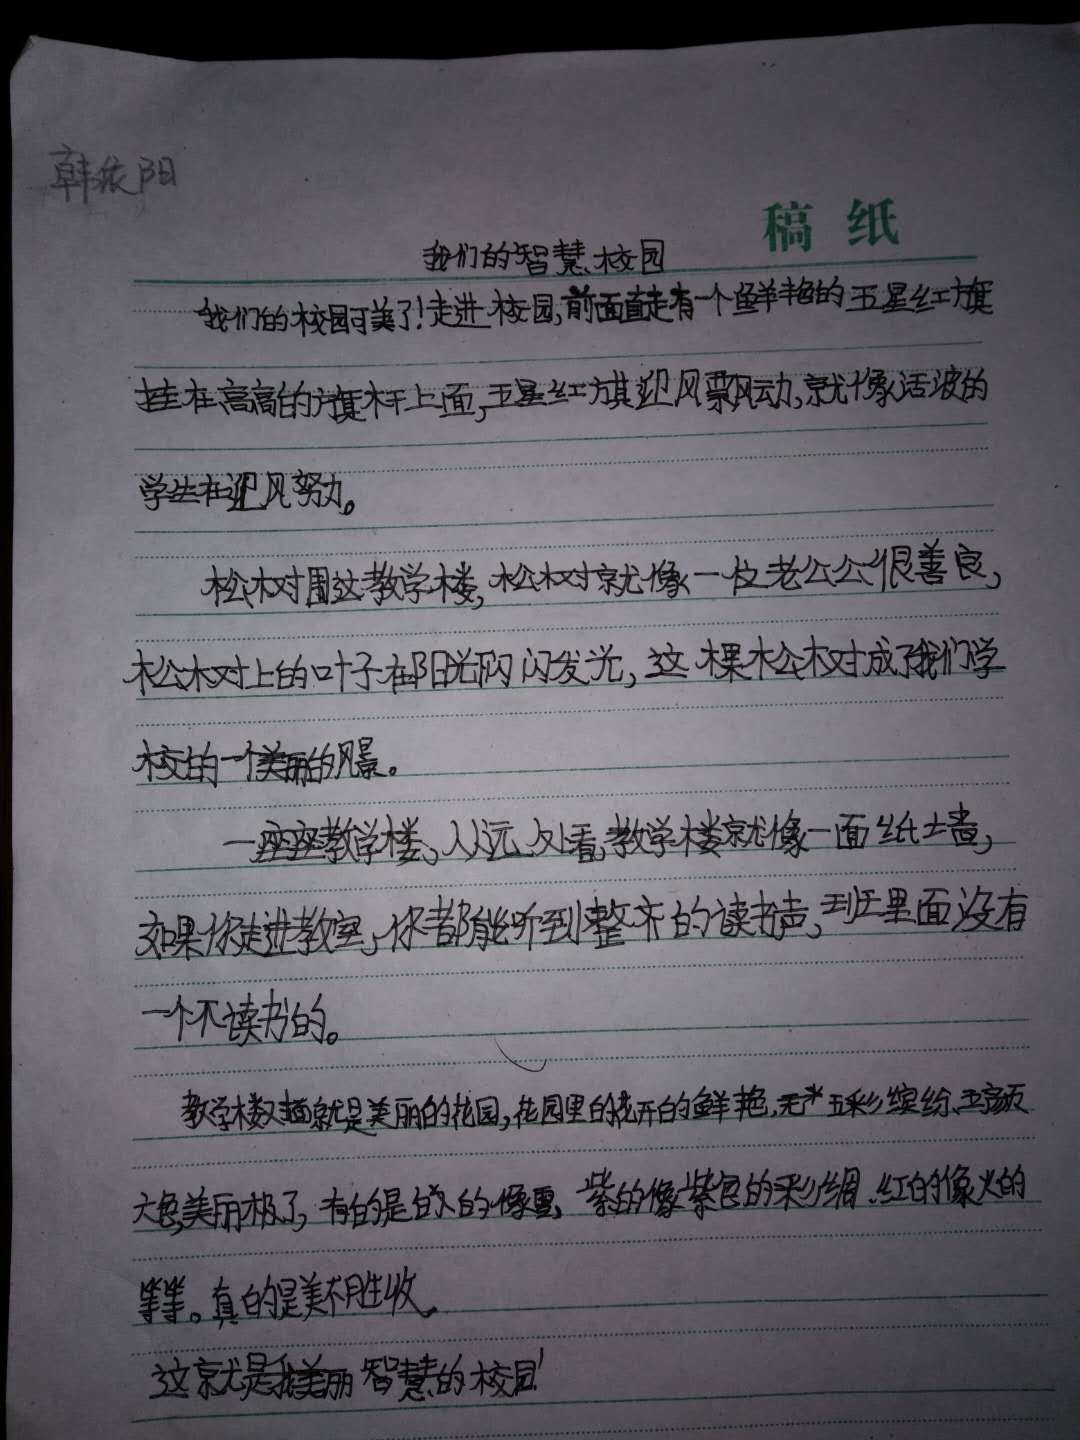 韩依阳
稿纸
我们的智慧校园
我们的校园可美了!走进校园,前面直走有一个鲜艳的五星红旗
挂在高高的旗杆上面,五星红旗迎风飘动,就像活波的
学生在迎风努力。
松树围这教学楼,松树就像一位老公公很善良,
松树上的叶子在阳光闪闪发光,这棵松树成了我们学
校的一个美丽的风景。
一座座教学楼,从远处看,教学楼就像一面纸墙,
如果你走进教室,你都能听到整齐的读书声,班里面没有
一个不读书的。
教学楼对面就是美丽的花园,花园里的花开的鲜艳无 五彩缤纷、五颜
六色,美丽极了,有的是白的像雪,紫的像紫色的彩绸、红的像火的
等等。真的是美不胜收。
这就是我美丽智慧的校园!